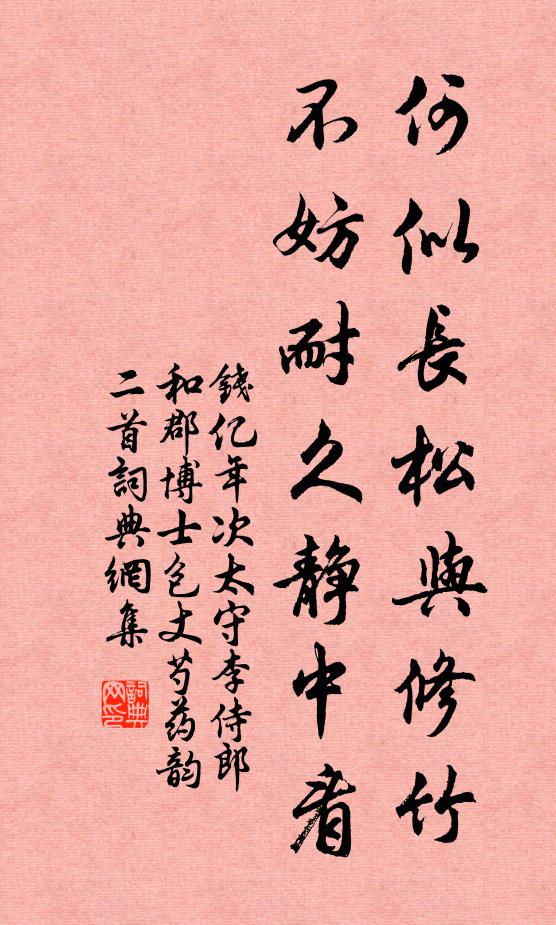 何似長松與修竹
不妨耐久静中看
錢亿年次太守李侍郎
和郡博士包丈芍药韵
二首詞典網集
詞典网印